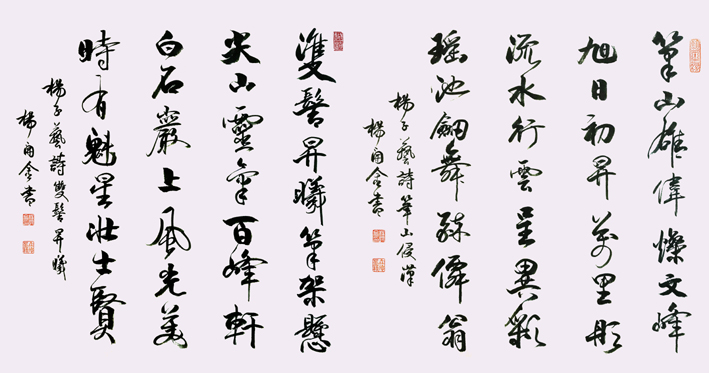 筆山雄偉燦文峰
旭日初昇萬里彤
流水行雲呈異彩
瑶池劒舞醉僊翁
楊子藝詩筆山侵漢
楊書
雙髻昇曦筆架懸
尖山靈氣百峰軒
白石巖上風光美
時有魁星壯士賢
楊子藝詩雙髻昇曦
楊書